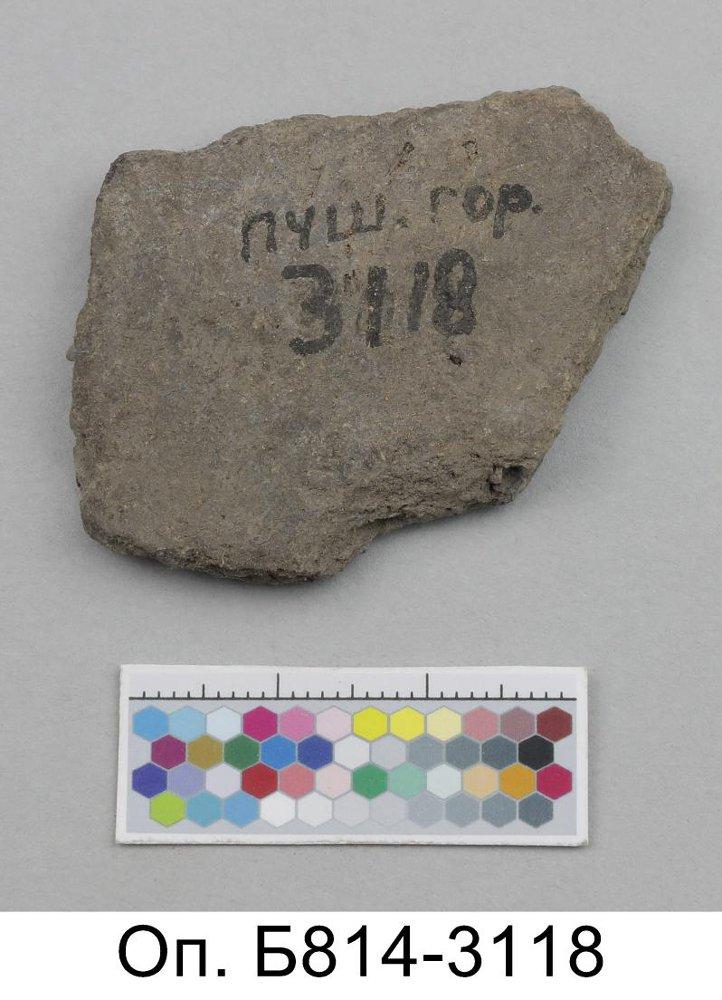 ПУШ. ГОР.
3118
Оп. Б814-3118